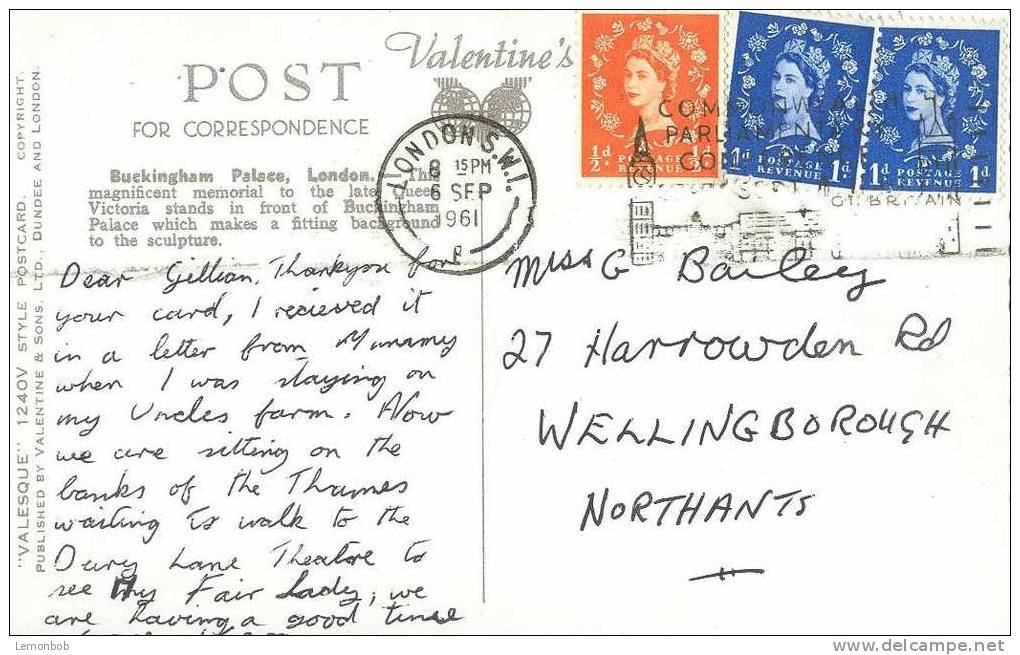 "VALESQUE" 1240V STYLE POSTCARD. COPYRIGHT.
PUBLISHED BY VALENTINE & SONS, LTD., DUNDEE AND LONDON.
POST
FOR CORRESPONDENCE
Valentine's
Buckingham Palace, London. This
magnificent memorial to the late Queen
Victoria stands in front of Buckingham
Palace which makes a fitting background
to the sculpture.
LONDON S.W.1.
8 15PM
6 SEP
1961
½d ½d
POSTAGE
REVENUE
1d POSTAGE 1d
REVENUE
1d POSTAGE 1d
REVENUE
OF BRITAIN
Dear Gillian, Thankyou for
your card, I recieved it
in a letter from Mummy
when I was staying on
my Uncles farm. Now
we are sitting on the
banks of the Thames
waiting to walk to the
Dury Lane Theatre to
see My Fair Lady, we
are having a good time
Miss G Bailey
27 Harrowden Rd
WELLINGBOROUGH
NORTHANTS
Lemonbob
www.delcampe.net